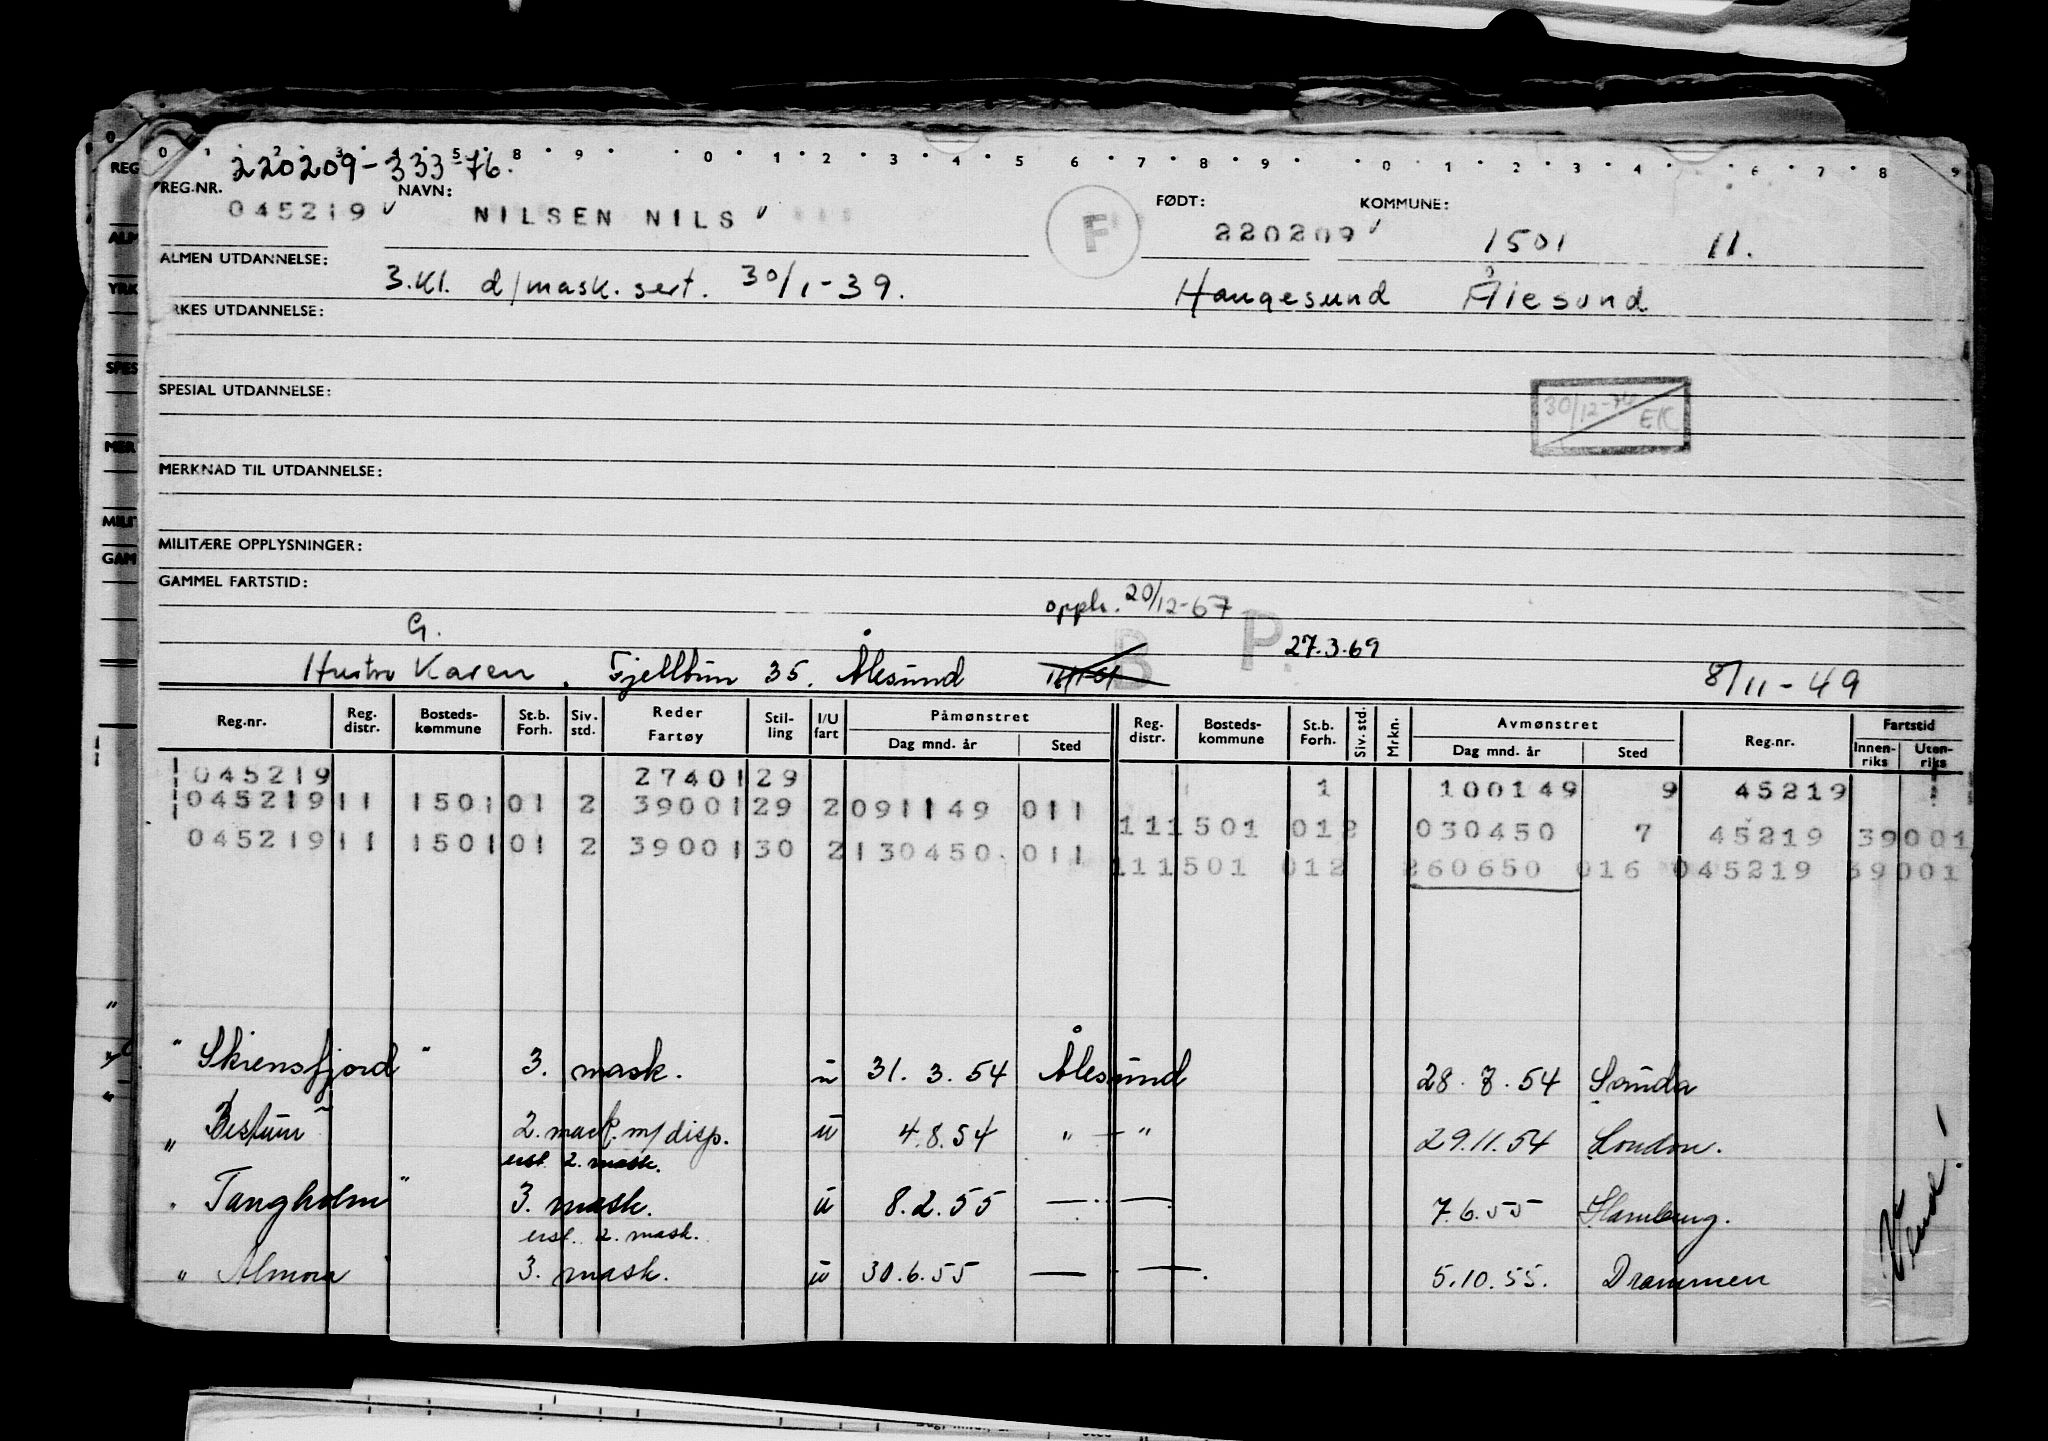 220209-33376.
REG.NR. NAVN: FØDT: KOMMUNE:
045219 NILSEN NILS F 220209 1501 11.
ALMEN UTDANNELSE: 3.kl. d/mask. sert. 30/1-39. Haugesund Ålesund
YRKES UTDANNELSE:
SPESIAL UTDANNELSE:
30/12-74 EK
MERKNAD TIL UTDANNELSE:
MILITÆRE OPPLYSNINGER:
GAMMEL FARTSTID:
opph. 20/12-67
G. B P. 27.3.69
Hustru Karen, Fjelltun 35. Ålesund 8/11-49
Reg.nr. Reg. distr. Bosteds-kommune St.b. Forh. Siv. std. Reder Fartøy Stil-ling I/U fart Påmønstret Reg. distr. Bosteds-kommune St.b. Forh. Siv. std. Mrkn. Avmønstret Reg.nr. Fartstid
Dag mnd. år Sted Dag mnd. år Sted Innen-riks Uten-riks
045219 27401 29 1 100149 9 45219
045219 11 1501 01 2 39001 29 2 091149 011 11 1501 012 030450 7 45219 39001
045219 11 1501 01 2 39001 30 2 130450 011 11 1501 012 260650 016 045219 39001
" Skiensfjord " 3. mask. u 31.3.54 Ålesund 28.7.54 Sauda
" Bestum " 2. mask. m/disp. u 4.8.54 " — " 29.11.54 London.
usl. 2. mask.
" Tangholm " 3. mask. u 8.2.55 — " — 7.6.55 Hamburg.
usl. 2. mask.
" Almora 3. mask. u 30.6.55 — " — 5.10.55. Drammen
Vend!